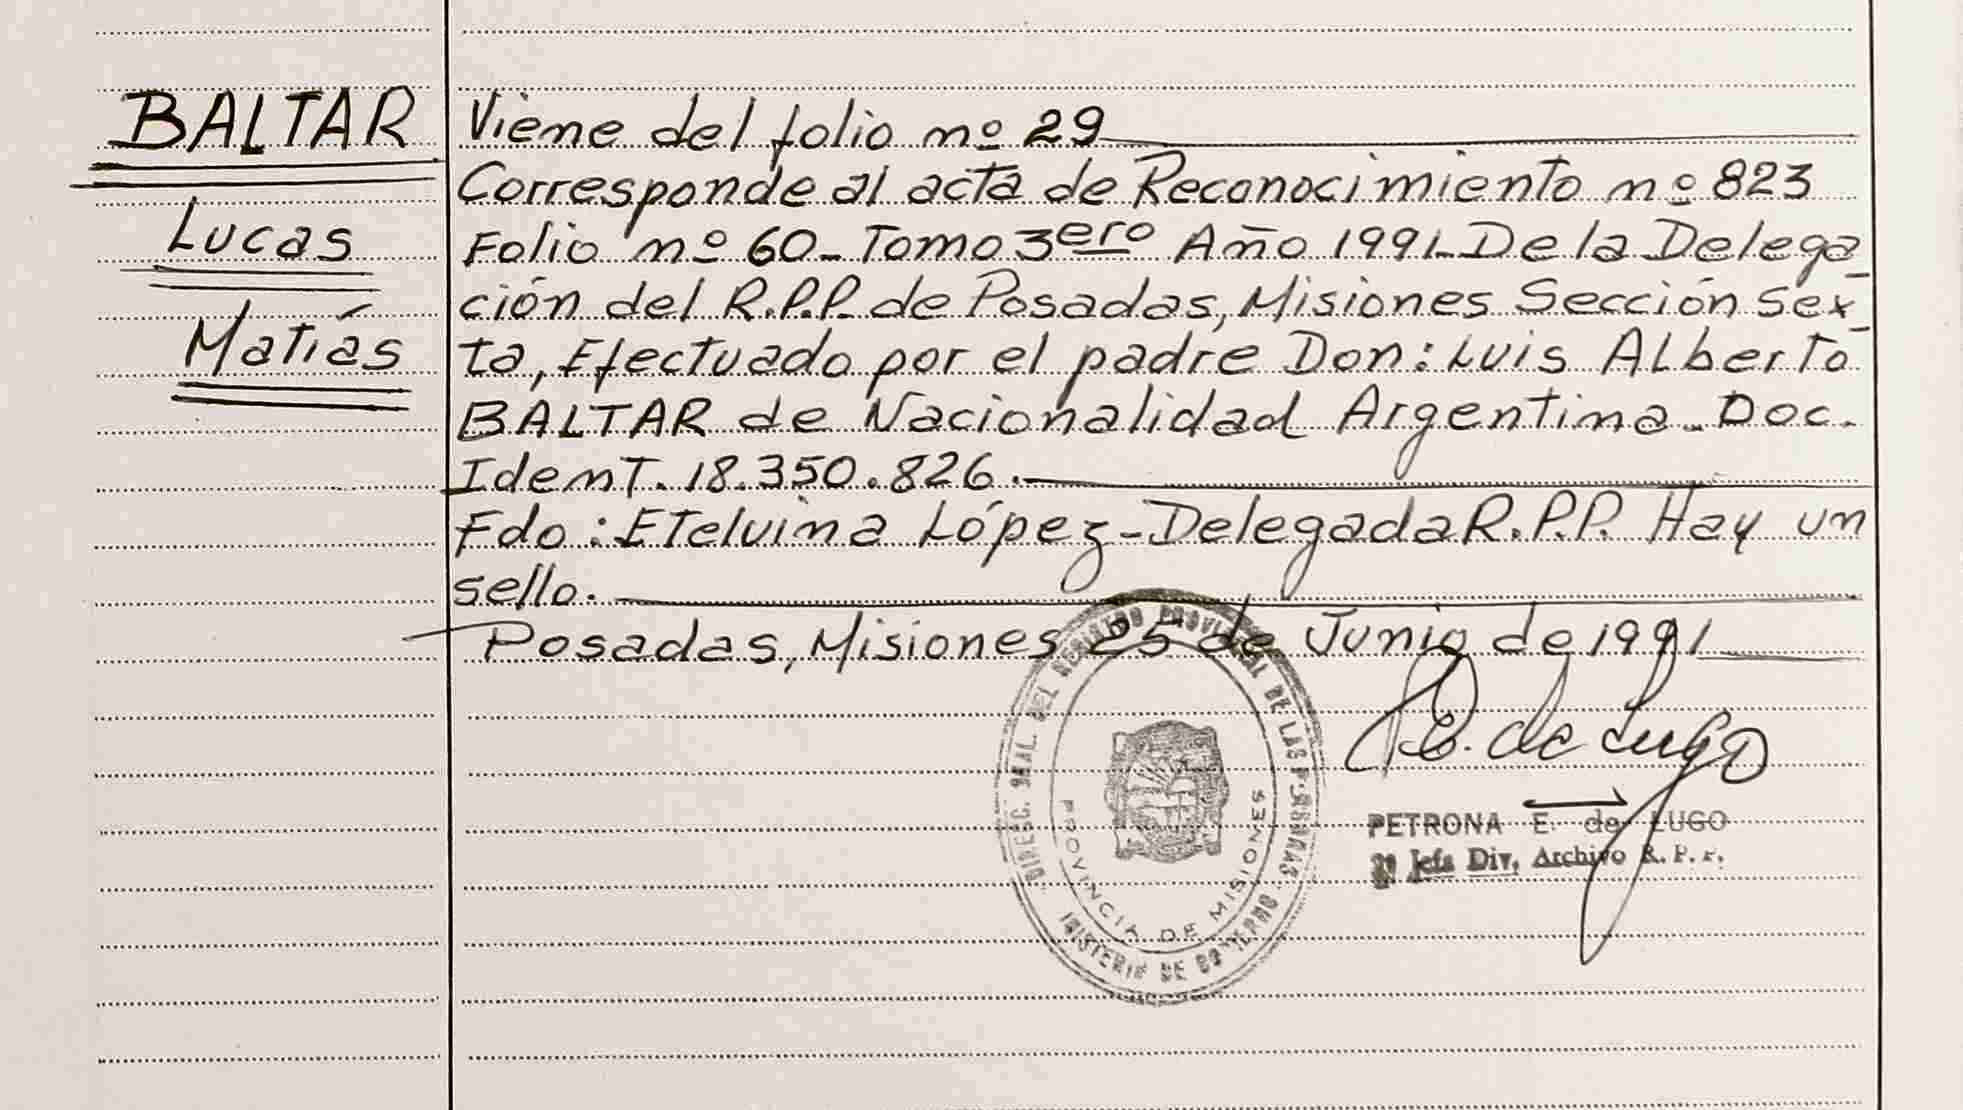 BALTAR
Lucas
Matías
Viene del folio nº 29
Corresponde al acta de Reconocimiento nº 823
Folio nº 60_ Tomo 3ero Año 1991_ De la Delega_
ción del R.P.P. de Posadas, Misiones Sección Sex_
ta, Efectuado por el padre Don: Luis Alberto
BALTAR de Nacionalidad Argentina_ Doc.
Ident. 18.350.826.
Fdo: Etelvina López_ Delegada R.P.P. Hay un
sello.
Posadas, Misiones 25 de Junio de 1991
DIREC. GRAL. DEL REGISTRO PROVINCIAL DE LAS PERSONAS
PROVINCIA DE MISIONES
MINISTERIO DE GOBIERNO
E. de Lugo
PETRONA E. de LUGO
Jefa Div. Archivo R. P. P.